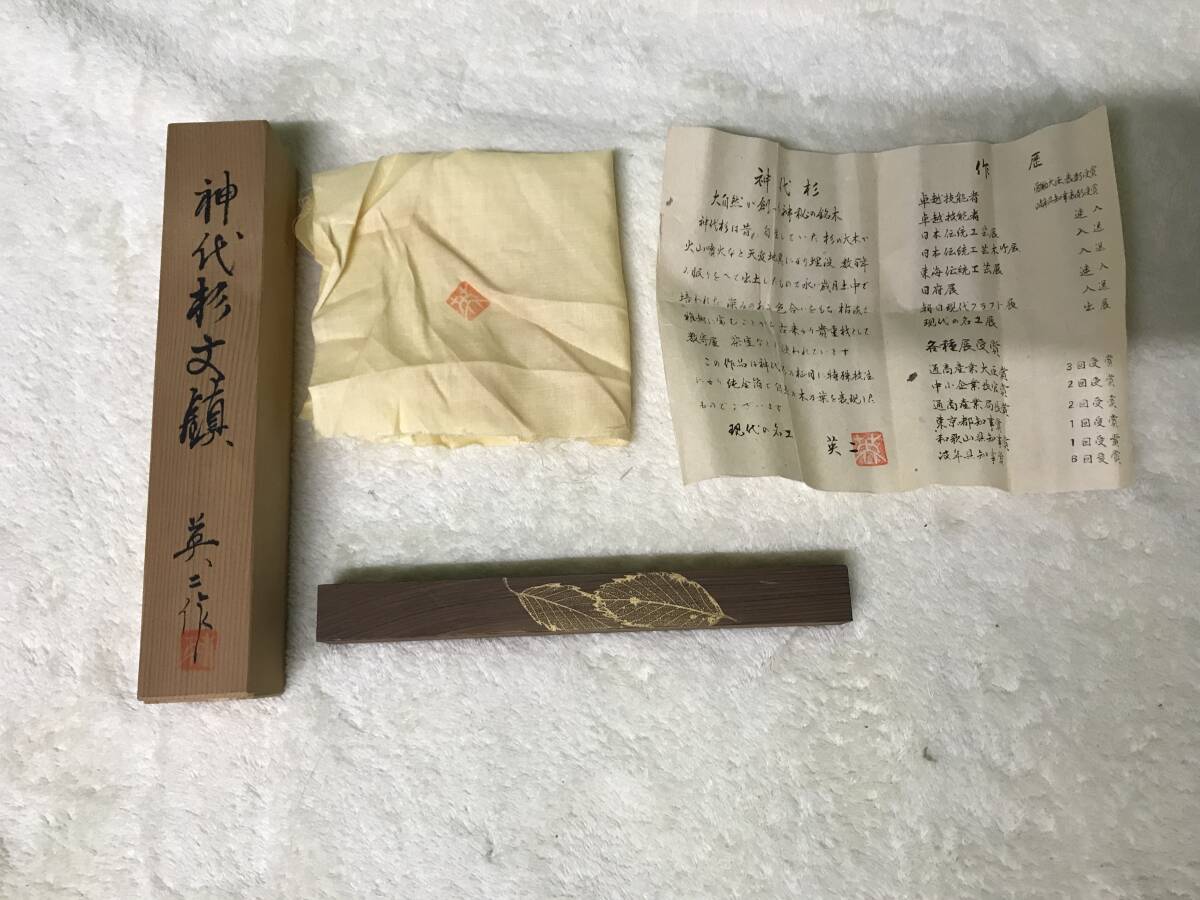 神代杉文鎮
英二作
神代杉
大自然が創った神秘の銘木
神代杉は昔、自生していた杉の大木が
火山噴火など天変地異により埋没 数百年
の眠りをへて出土したもので永い歳月土中で
培われた深みのある色合いをもち 枯淡と
雅趣に富むことから古来から貴重材として
数寄屋 茶室などに使われています
この作品は神代杉の柾目に特殊技法
により純金箔で自然の木の葉を表現した
ものでございます
現代の名工
英二
作歴
卓越技能者 労働大臣表彰受賞
卓越技能者 岐阜県知事表彰受賞
日本伝統工芸展 入選
日本伝統工芸木竹展 入選
東海伝統工芸展 入選
日府展 入選
朝日現代クラフト展 入選
現代の名工展 出展
各種展受賞
通商産業大臣賞 3回受賞
中小企業長官賞 2回受賞
通商産業局長賞 2回受賞
東京都知事賞 1回受賞
和歌山県知事賞 1回受賞
岐阜県知事賞 8回受賞